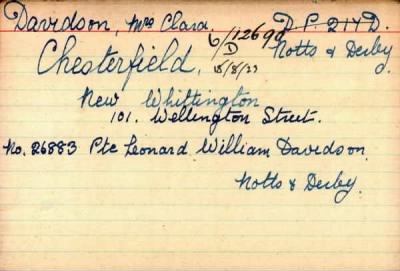 Davidson, Mrs Clara. D.P. 217D.
6/12690
D
Notts & Derby.
Chesterfield, 18/8/23
New Whittington
101. Wellington Street.
No. 26883 Pte Leonard William Davidson
Notts & Derby.